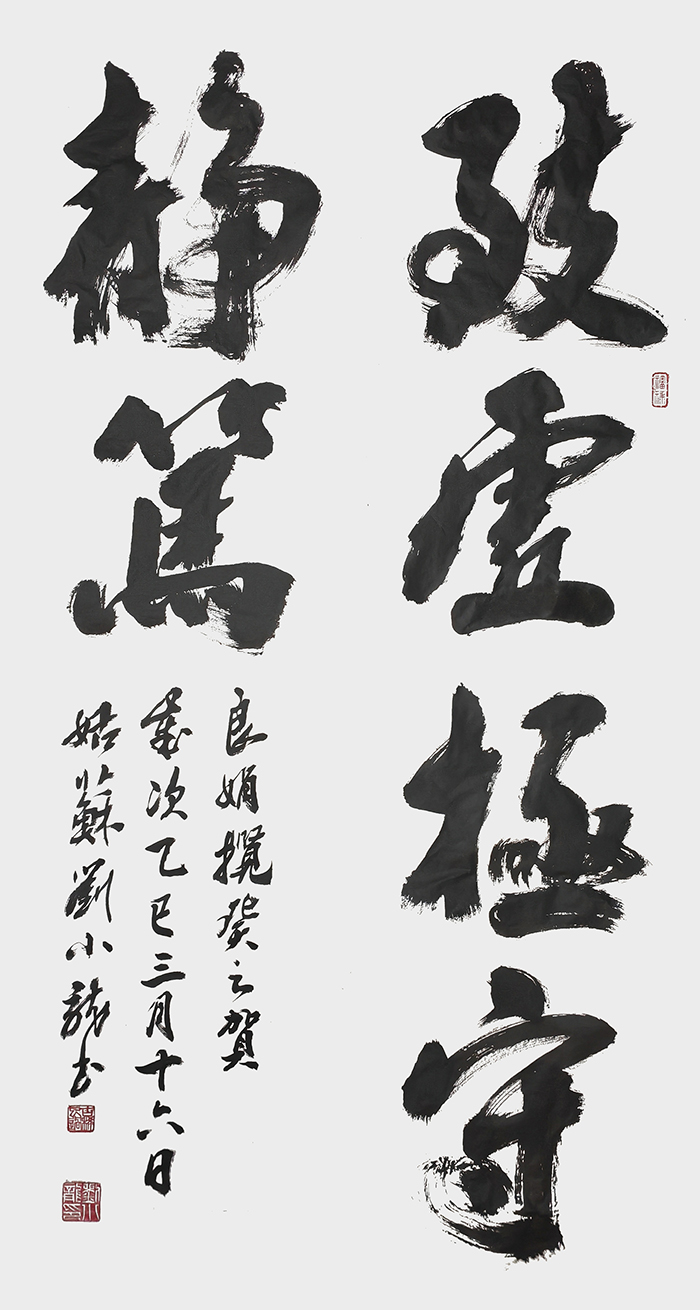 致虚極守
静篤
良娟撰癸之賀
歲次乙巳三月十六日
姑蘇劉小龍書